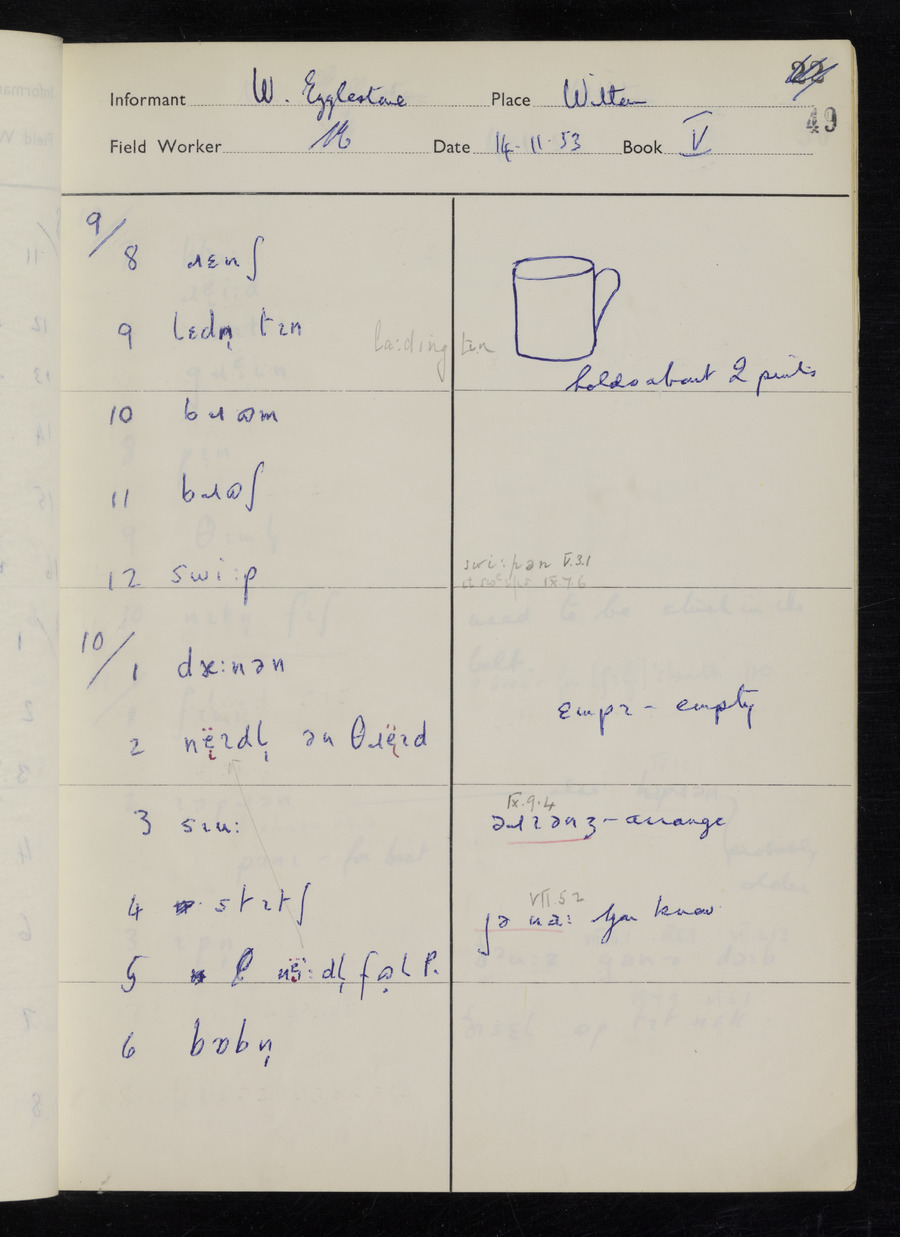 22
49
Informant W. Egglestone Place Witton
Field Worker Date 14-11-53 Book V
9/8 ɹɛnʃ
9 lɛdn̩ tɪn
la:ding tɪn
holds about 2 pints
10 bɹʊm
11 bɹʊʃ
12 swi:p
swi:pən V.3.1
IX.7.6
10/1 dæ:nən
2 në̜ɪdl̩ ən θɹë̜ɪd
ɛmpɪ - empty
3 sɪu:
IX.9.4
əɹɪənʒ - arrange
4 stɪtʃ
VII.5.2
jə na: You know
5 P në̜:dl̩ fʊl P.
6 bɒbn̩